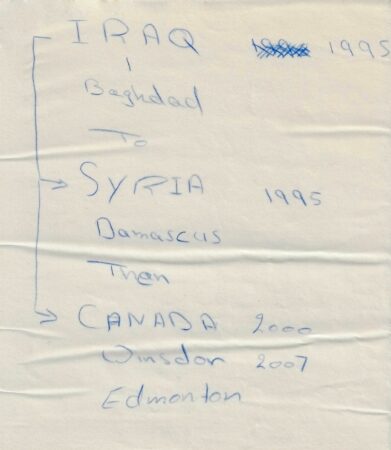 IRAQ 1995
Baghdad
To
SYRIA 1995
Damascus
Then
CANADA 2000
Winsdor 2007
Edmonton